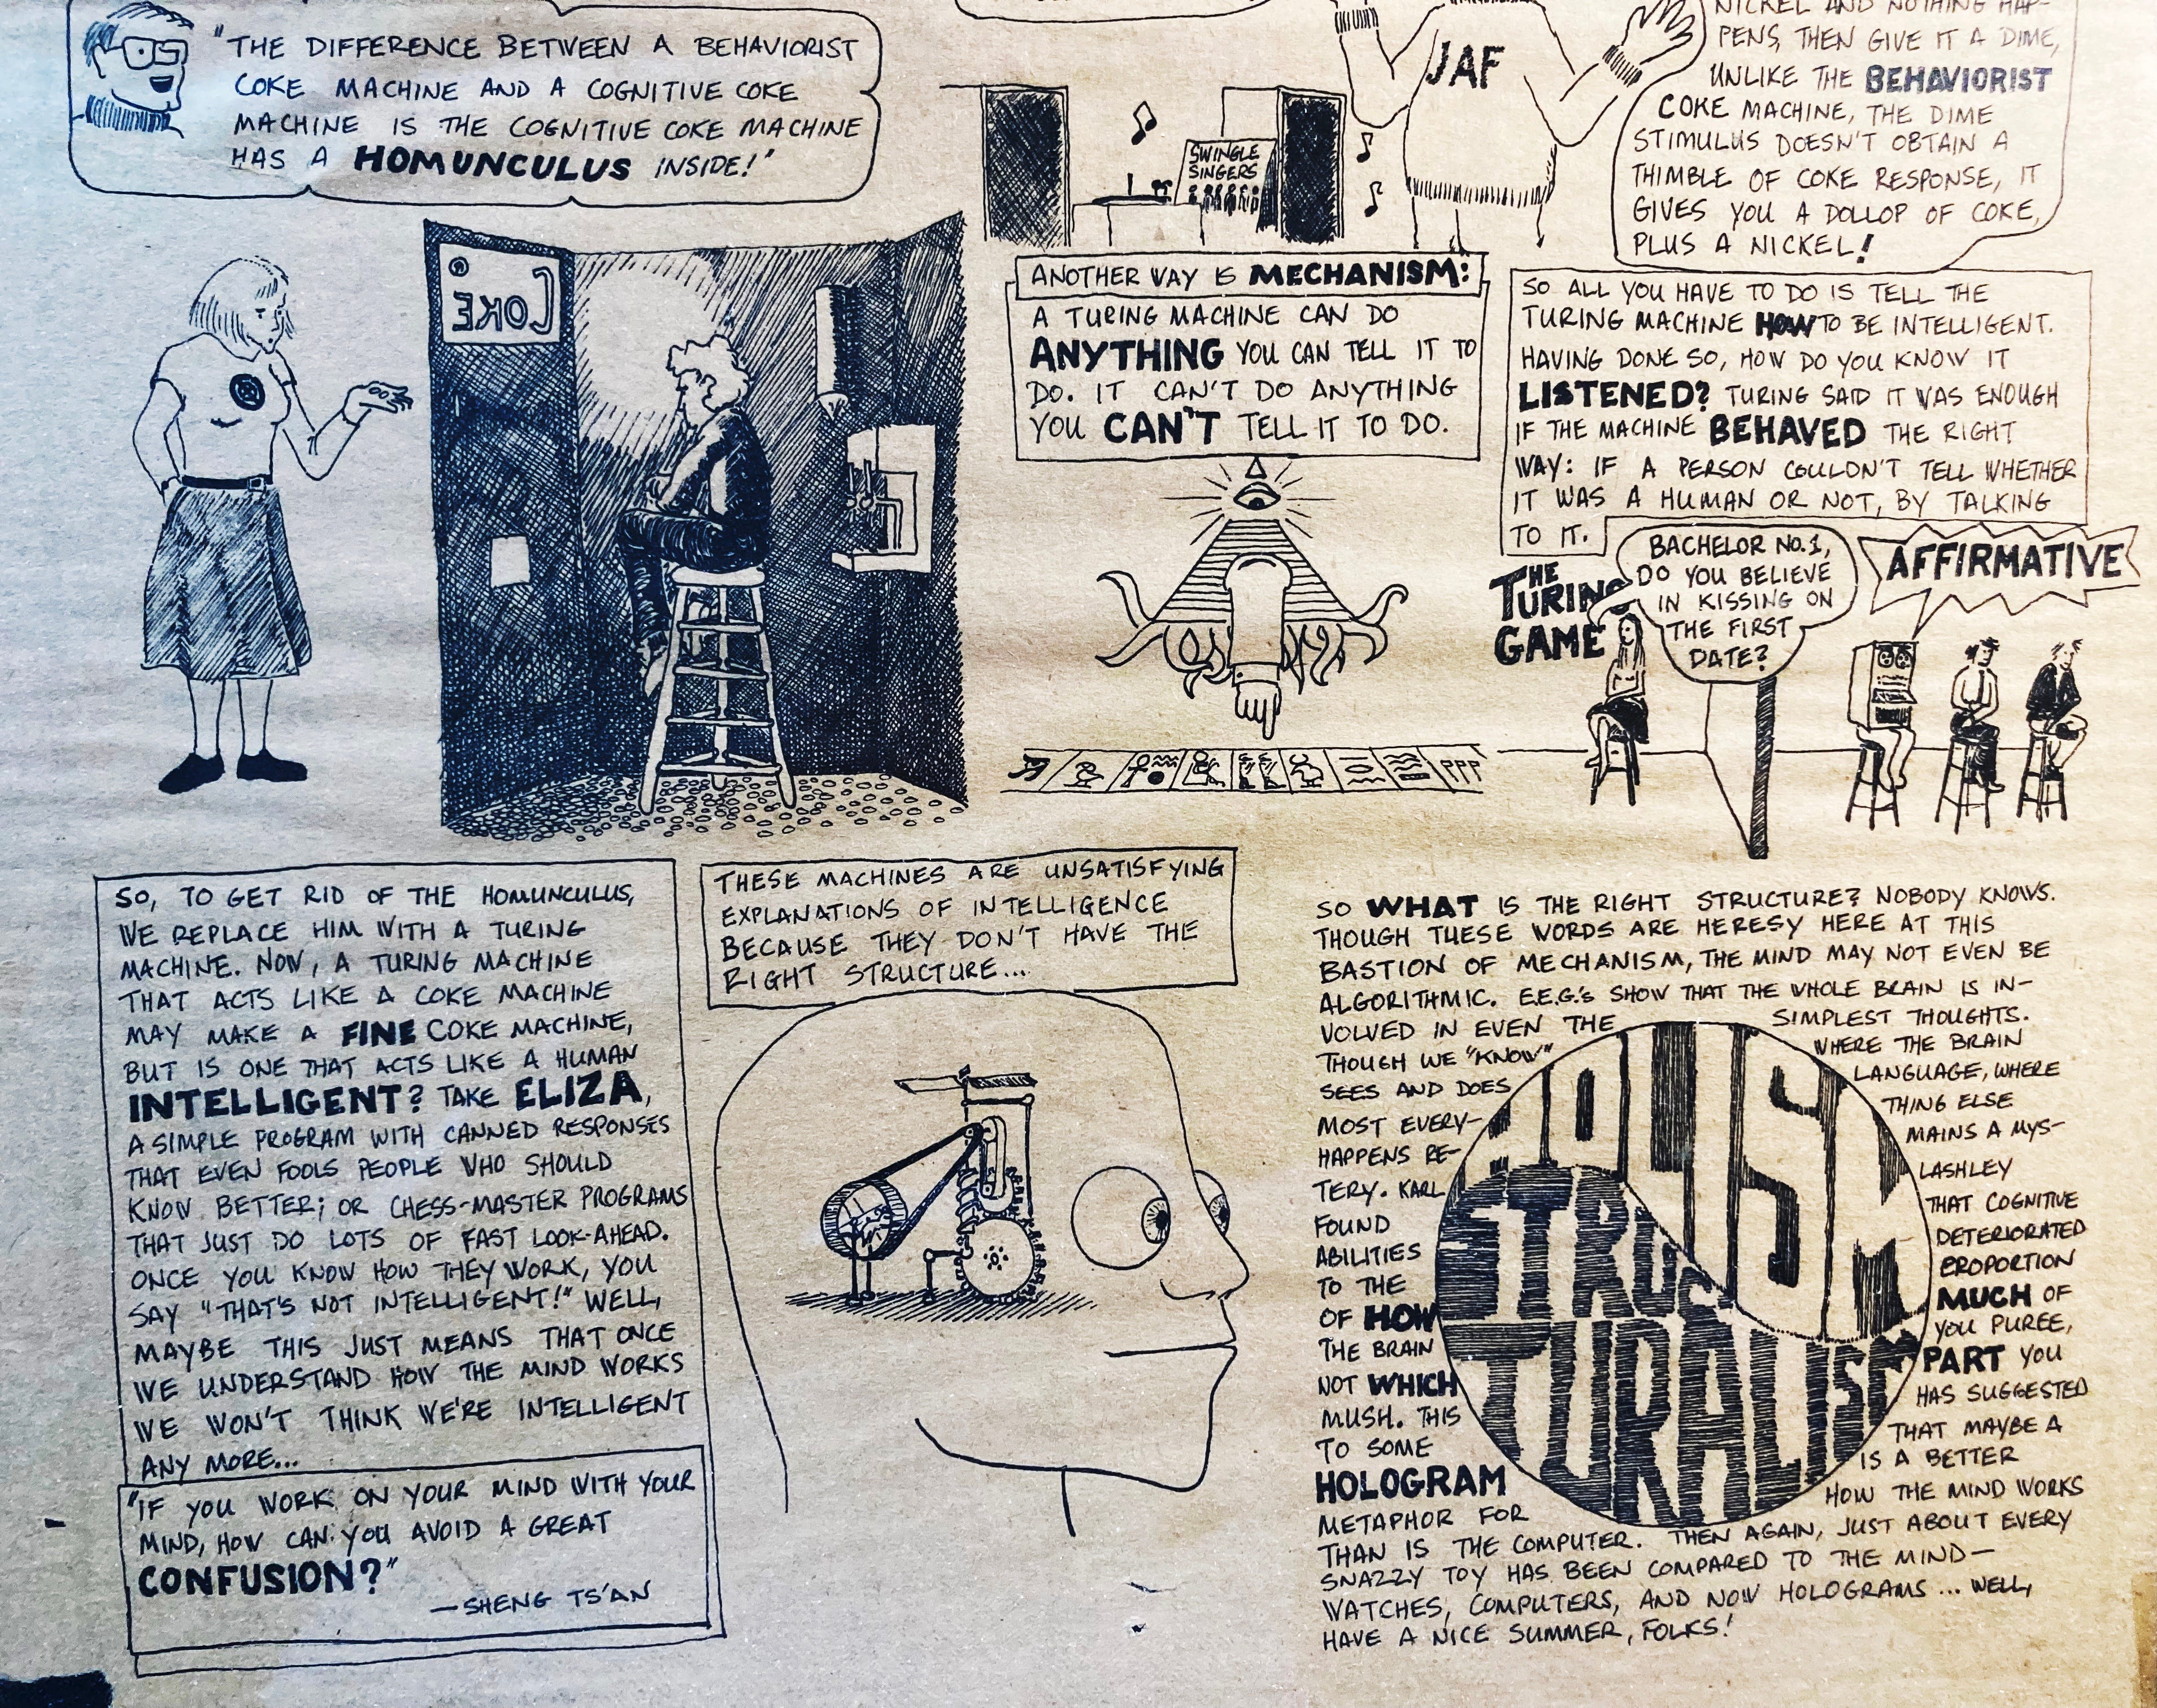 "THE DIFFERENCE BETWEEN A BEHAVIORIST
COKE MACHINE AND A COGNITIVE COKE
MACHINE IS THE COGNITIVE COKE MACHINE
HAS A HOMUNCULUS INSIDE!"
COKE
JAF
SWINGLE
SINGERS
NICKEL AND NOTHING HAP-
PENS, THEN GIVE IT A DIME,
UNLIKE THE BEHAVIORIST
COKE MACHINE, THE DIME
STIMULUS DOESN'T OBTAIN A
THIMBLE OF COKE RESPONSE, IT
GIVES YOU A DOLLOP OF COKE,
PLUS A NICKEL!
ANOTHER WAY IS MECHANISM:
A TURING MACHINE CAN DO
ANYTHING YOU CAN TELL IT TO
DO. IT CAN'T DO ANYTHING
YOU CAN'T TELL IT TO DO.
SO ALL YOU HAVE TO DO IS TELL THE
TURING MACHINE HOW TO BE INTELLIGENT.
HAVING DONE SO, HOW DO YOU KNOW IT
LISTENED? TURING SAID IT WAS ENOUGH
IF THE MACHINE BEHAVED THE RIGHT
WAY: IF A PERSON COULDN'T TELL WHETHER
IT WAS A HUMAN OR NOT, BY TALKING
TO IT.
THE
TURING
GAME
BACHELOR NO.1,
DO YOU BELIEVE
IN KISSING ON
THE FIRST
DATE?
AFFIRMATIVE
SO, TO GET RID OF THE HOMUNCULUS,
WE REPLACE HIM WITH A TURING
MACHINE. NOW, A TURING MACHINE
THAT ACTS LIKE A COKE MACHINE
MAY MAKE A FINE COKE MACHINE,
BUT IS ONE THAT ACTS LIKE A HUMAN
INTELLIGENT? TAKE ELIZA,
A SIMPLE PROGRAM WITH CANNED RESPONSES
THAT EVEN FOOLS PEOPLE WHO SHOULD
KNOW BETTER; OR CHESS-MASTER PROGRAMS
THAT JUST DO LOTS OF FAST LOOK-AHEAD.
ONCE YOU KNOW HOW THEY WORK, YOU
SAY "THAT'S NOT INTELLIGENT!" WELL,
MAYBE THIS JUST MEANS THAT ONCE
WE UNDERSTAND HOW THE MIND WORKS
WE WON'T THINK WE'RE INTELLIGENT
ANY MORE...
"IF YOU WORK ON YOUR MIND WITH YOUR
MIND, HOW CAN YOU AVOID A GREAT
CONFUSION?"
—SHENG TS'AN
THESE MACHINES ARE UNSATISFYING
EXPLANATIONS OF INTELLIGENCE
BECAUSE THEY DON'T HAVE THE
RIGHT STRUCTURE...
SO WHAT IS THE RIGHT STRUCTURE? NOBODY KNOWS.
THOUGH THESE WORDS ARE HERESY HERE AT THIS
BASTION OF MECHANISM, THE MIND MAY NOT EVEN BE
ALGORITHMIC. E.E.G.'s SHOW THAT THE WHOLE BRAIN IS IN-
VOLVED IN EVEN THE SIMPLEST THOUGHTS.
THOUGH WE "KNOW" WHERE THE BRAIN
SEES AND DOES LANGUAGE, WHERE
MOST EVERY- THING ELSE
HAPPENS RE- MAINS A MYS-
TERY. KARL LASHLEY
FOUND THAT COGNITIVE
ABILITIES DETERIORATED
TO THE PROPORTION
OF HOW MUCH OF
THE BRAIN YOU PUREE,
NOT WHICH PART YOU
MUSH. THIS HAS SUGGESTED
TO SOME THAT MAYBE A
HOLOGRAM IS A BETTER
METAPHOR FOR HOW THE MIND WORKS
THAN IS THE COMPUTER. THEN AGAIN, JUST ABOUT EVERY
SNAZZY TOY HAS BEEN COMPARED TO THE MIND—
WATCHES, COMPUTERS, AND NOW HOLOGRAMS... WELL,
HAVE A NICE SUMMER, FOLKS!
HOLISM
STRUC
TURALISM